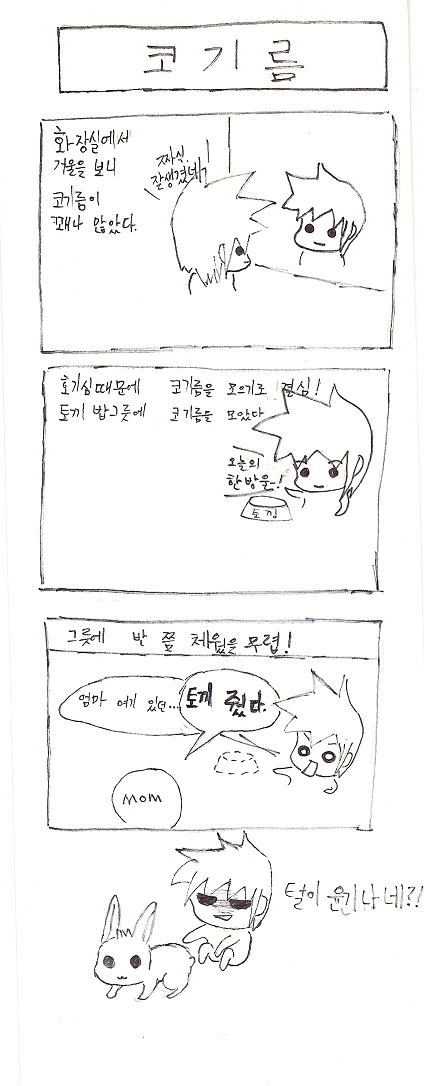 코기름
화장실에서
거울을 보니
코기름이
꽤나 많았다.
짜식.
잘생겼네!
호기심때문에 코기름을 모으기로 결심!
토끼 밥그릇에 코기름을 모았다
오늘의
한방울~!
토깅
그릇에 반 쯤 채웠을 무렵!
엄마 여기 있던...
토끼 줬다.
MOM
털이 윤기나네?!